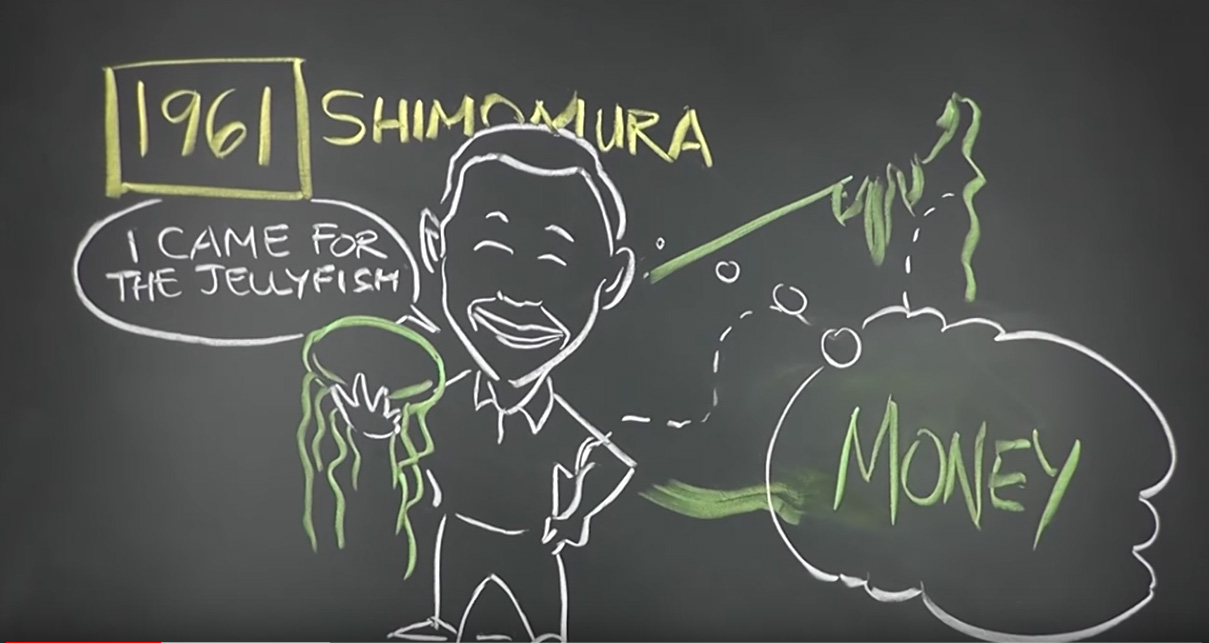 1961 SHIMOMURA
I CAME FOR
THE JELLYFISH
MONEY